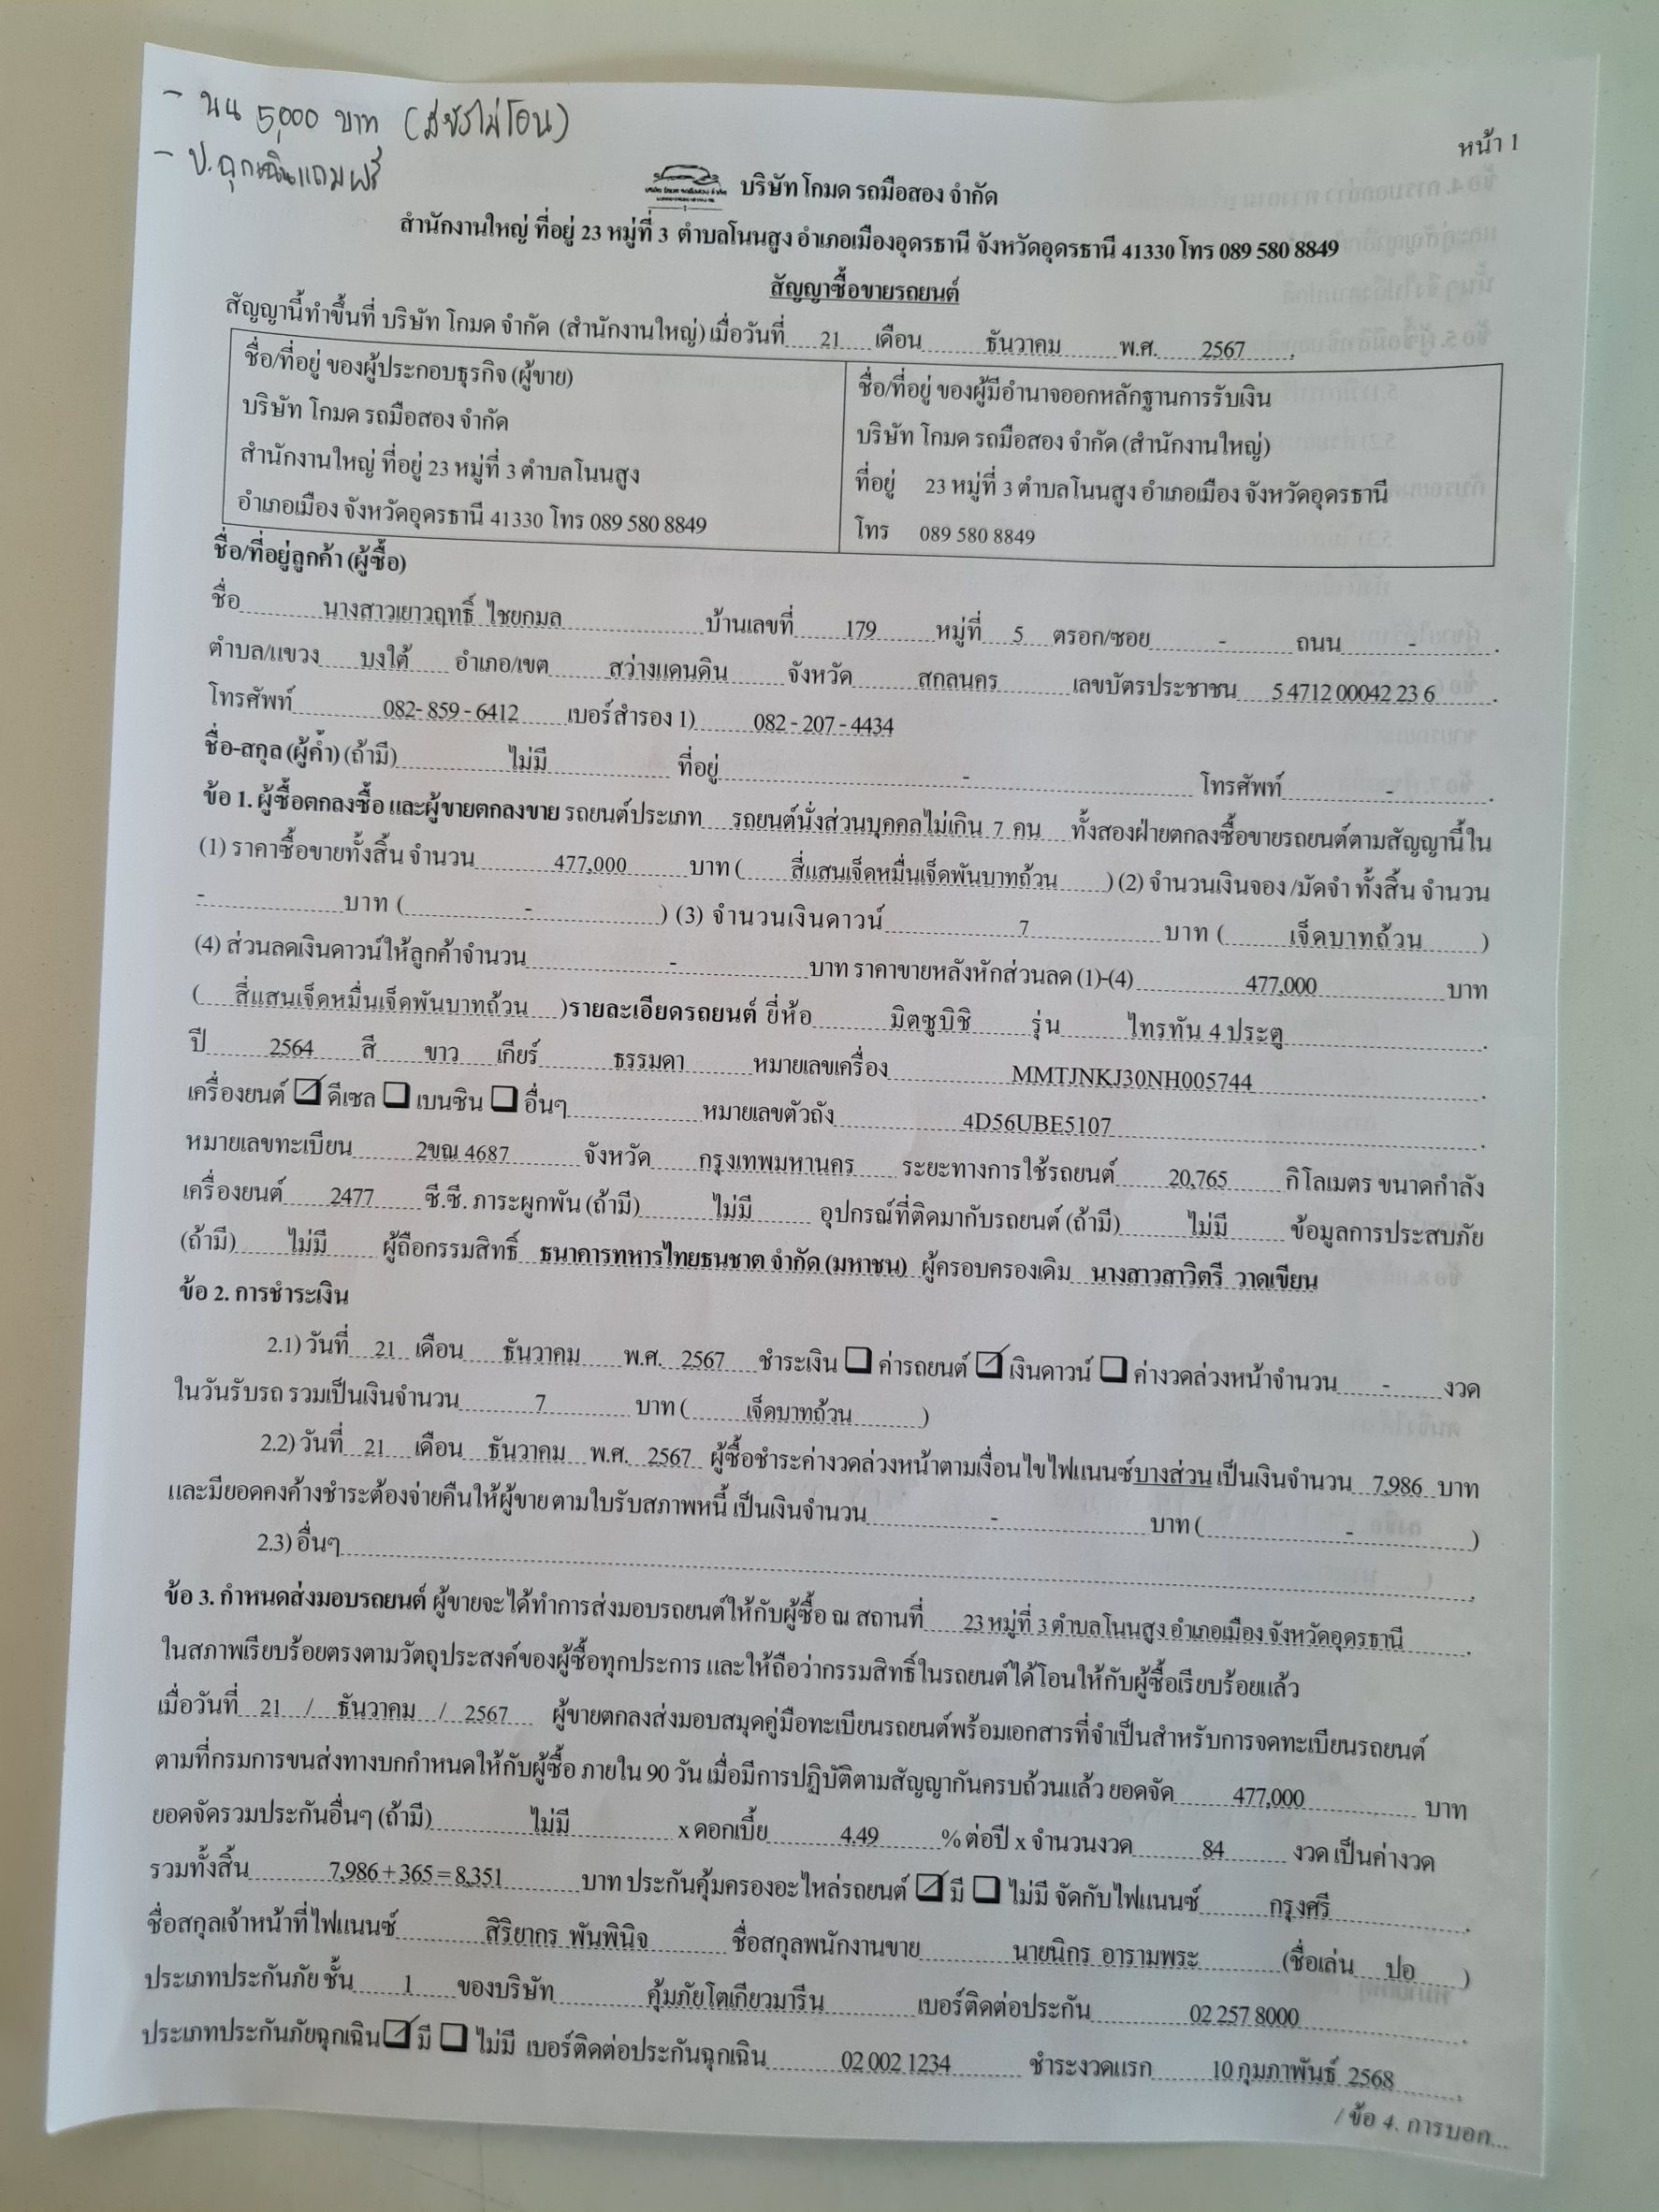 - นน 5,000 บาท (ยังไม่โอน)
- ป.ฉุกเฉินแถมฟรี
หน้า 1
บริษัท โกมด รถมือสอง จำกัด
สำนักงานใหญ่ ที่อยู่ 23 หมู่ที่ 3 ตำบลโนนสูง อำเภอเมืองอุดรธานี จังหวัดอุดรธานี 41330 โทร 089 580 8849
สัญญาซื้อขายรถยนต์
สัญญานี้ทำขึ้นที่ บริษัท โกมด จำกัด (สำนักงานใหญ่) เมื่อวันที่ 21 เดือน ธันวาคม พ.ศ. 2567
ชื่อ/ที่อยู่ ของผู้ประกอบธุรกิจ (ผู้ขาย)
บริษัท โกมด รถมือสอง จำกัด
สำนักงานใหญ่ ที่อยู่ 23 หมู่ที่ 3 ตำบลโนนสูง
อำเภอเมือง จังหวัดอุดรธานี 41330 โทร 089 580 8849
ชื่อ/ที่อยู่ ของผู้มีอำนาจออกหลักฐานการรับเงิน
บริษัท โกมด รถมือสอง จำกัด (สำนักงานใหญ่)
ที่อยู่ 23 หมู่ที่ 3 ตำบลโนนสูง อำเภอเมือง จังหวัดอุดรธานี
โทร 089 580 8849
ชื่อ/ที่อยู่ลูกค้า (ผู้ซื้อ)
ชื่อ นางสาวเยาวฤทธิ์ ไชยกมล บ้านเลขที่ 179 หมู่ที่ 5 ตรอก/ซอย - ถนน -
ตำบล/แขวง บงใต้ อำเภอ/เขต สว่างแดนดิน จังหวัด สกลนคร เลขบัตรประชาชน 5 4712 00042 23 6
โทรศัพท์ 082- 859 - 6412 เบอร์สำรอง 1) 082 - 207 - 4434
ชื่อ-สกุล (ผู้ค้ำ) (ถ้ามี) ไม่มี ที่อยู่ - โทรศัพท์ -
ข้อ 1. ผู้ซื้อตกลงซื้อ และผู้ขายตกลงขาย รถยนต์ประเภท รถยนต์นั่งส่วนบุคคลไม่เกิน 7 คน ทั้งสองฝ่ายตกลงซื้อขายรถยนต์ตามสัญญานี้ใน
(1) ราคาซื้อขายทั้งสิ้น จำนวน 477,000 บาท ( สี่แสนเจ็ดหมื่นเจ็ดพันบาทถ้วน ) (2) จำนวนเงินจอง /มัดจำ ทั้งสิ้น จำนวน
- บาท ( - ) (3) จำนวนเงินดาวน์ 7 บาท ( เจ็ดบาทถ้วน )
(4) ส่วนลดเงินดาวน์ให้ลูกค้าจำนวน - บาท ราคาขายหลังหักส่วนลด (1)-(4) 477,000 บาท
( สี่แสนเจ็ดหมื่นเจ็ดพันบาทถ้วน )รายละเอียดรถยนต์ ยี่ห้อ มิตซูบิชิ รุ่น ไทรทัน 4 ประตู
ปี 2564 สี ขาว เกียร์ ธรรมดา หมายเลขเครื่อง MMTJNKJ30NH005744
เครื่องยนต์ ☑ ดีเซล ☐ เบนซิน ☐ อื่นๆ หมายเลขตัวถัง 4D56UBE5107
หมายเลขทะเบียน 2ขณ 4687 จังหวัด กรุงเทพมหานคร ระยะทางการใช้รถยนต์ 20,765 กิโลเมตร ขนาดกำลัง
เครื่องยนต์ 2477 ซี.ซี. ภาระผูกพัน (ถ้ามี) ไม่มี อุปกรณ์ที่ติดมากับรถยนต์ (ถ้ามี) ไม่มี ข้อมูลการประสบภัย
(ถ้ามี) ไม่มี ผู้ถือกรรมสิทธิ์ ธนาคารทหารไทยธนชาต จำกัด (มหาชน) ผู้ครอบครองเดิม นางสาวสาวิตรี วาดเขียน
ข้อ 2. การชำระเงิน
2.1) วันที่ 21 เดือน ธันวาคม พ.ศ. 2567 ชำระเงิน ☐ ค่ารถยนต์ ☑ เงินดาวน์ ☐ ค่างวดล่วงหน้าจำนวน - งวด
ในวันรับรถ รวมเป็นเงินจำนวน 7 บาท ( เจ็ดบาทถ้วน )
2.2) วันที่ 21 เดือน ธันวาคม พ.ศ. 2567 ผู้ซื้อชำระค่างวดล่วงหน้าตามเงื่อนไขไฟแนนซ์บางส่วน เป็นเงินจำนวน 7,986 บาท
และมียอดคงค้างชำระต้องจ่ายคืนให้ผู้ขาย ตามใบรับสภาพหนี้ เป็นเงินจำนวน - บาท ( - )
2.3) อื่นๆ
ข้อ 3. กำหนดส่งมอบรถยนต์ ผู้ขายจะได้ทำการส่งมอบรถยนต์ให้กับผู้ซื้อ ณ สถานที่ 23 หมู่ที่ 3 ตำบลโนนสูง อำเภอเมือง จังหวัดอุดรธานี
ในสภาพเรียบร้อยตรงตามวัตถุประสงค์ของผู้ซื้อทุกประการ และให้ถือว่ากรรมสิทธิ์ในรถยนต์ได้โอนให้กับผู้ซื้อเรียบร้อยแล้ว
เมื่อวันที่ 21 / ธันวาคม / 2567 ผู้ขายตกลงส่งมอบสมุดคู่มือทะเบียนรถยนต์พร้อมเอกสารที่จำเป็นสำหรับการจดทะเบียนรถยนต์
ตามที่กรมการขนส่งทางบกกำหนดให้กับผู้ซื้อ ภายใน 90 วัน เมื่อมีการปฏิบัติตามสัญญากันครบถ้วนแล้ว ยอดจัด 477,000 บาท
ยอดจัดรวมประกันอื่นๆ (ถ้ามี) ไม่มี x ดอกเบี้ย 4.49 % ต่อปี x จำนวนงวด 84 งวด เป็นค่างวด
รวมทั้งสิ้น 7,986 + 365 = 8,351 บาท ประกันคุ้มครองอะไหล่รถยนต์ ☑ มี ☐ ไม่มี จัดกับไฟแนนซ์ กรุงศรี
ชื่อสกุลเจ้าหน้าที่ไฟแนนซ์ สิริยากร พันพินิจ ชื่อสกุลพนักงานขาย นายนิกร อารามพระ (ชื่อเล่น ปอ )
ประเภทประกันภัย ชั้น 1 ของบริษัท คุ้มภัยโตเกียวมารีน เบอร์ติดต่อประกัน 02 257 8000
ประเภทประกันภัยฉุกเฉิน ☑ มี ☐ ไม่มี เบอร์ติดต่อประกันฉุกเฉิน 02 002 1234 ชำระงวดแรก 10 กุมภาพันธ์ 2568
/ ข้อ 4. การบอก...